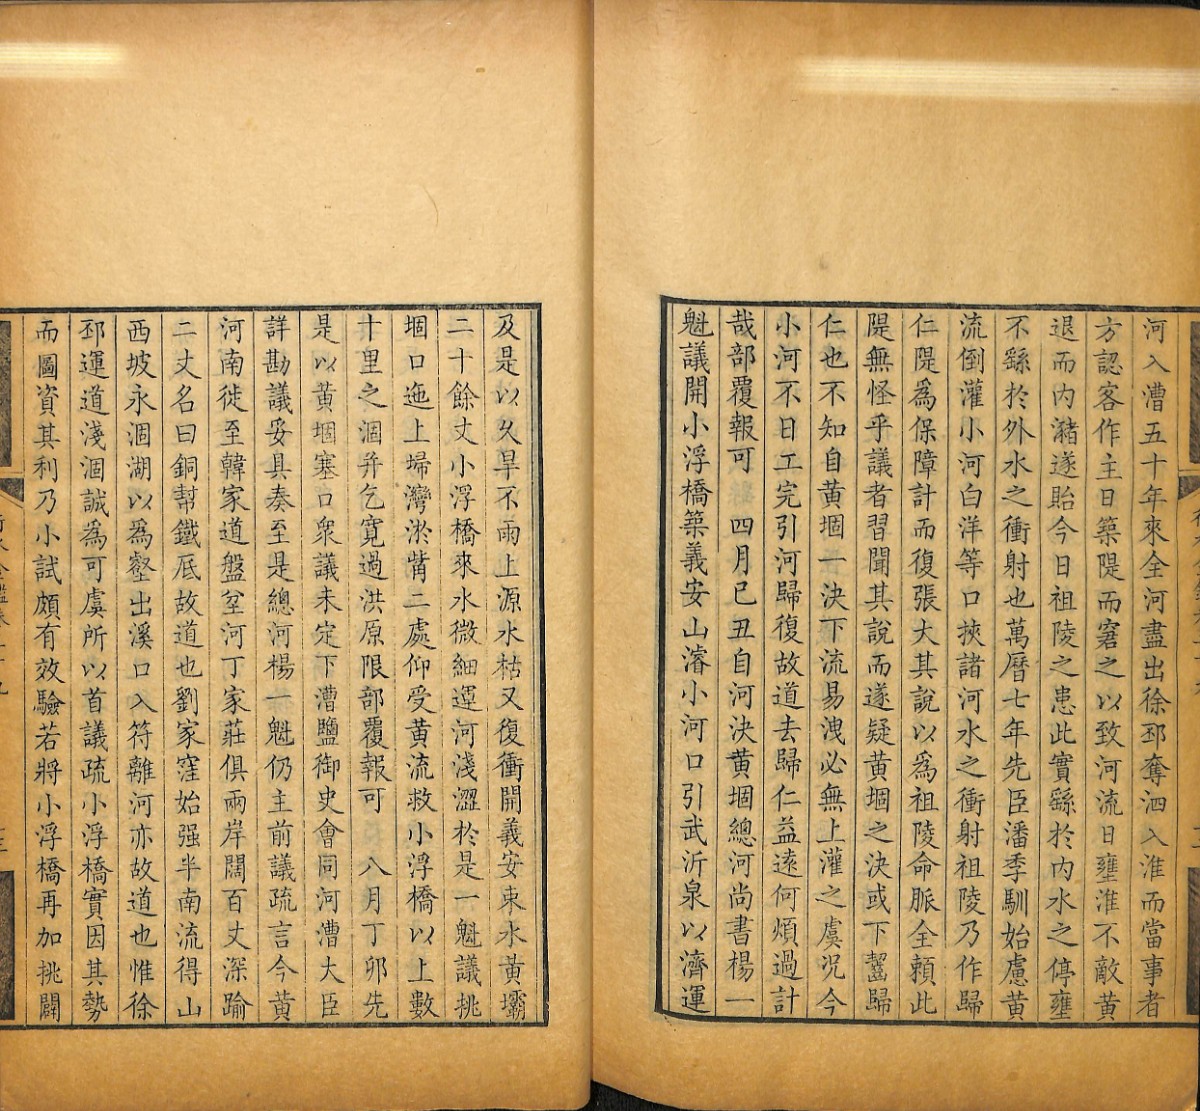 河入漕五十年來全河盡出徐邳奪泗入淮而當事者
方認客作主日築隄而窘之以致河流日壅淮不敵黃
退而內瀦遂貽今日祖陵之患此實繇於內水之停壅
不繇於外水之衝射也萬曆七年先臣潘季馴始慮黃
流倒灌小河白洋等口挾諸河水之衝射祖陵乃作歸
仁隄為保障計而復張大其說以為祖陵命脈全賴此
隄無怪乎議者習聞其說而遂疑黃堌之決或下齧歸
仁也不知自黃堌一決下流易洩必無上灌之虞况今
小河不日工完引河歸復故道去歸仁益遠何煩過計
哉部覆報可 四月已丑自河決黃堌總河尚書楊一
魁議開小浮橋築義安山濬小河口引武沂泉以濟運
及是以久旱不雨上源水枯又復衝開義安東水黃壩
二十餘丈小浮橋來水微細運河淺澀於是一魁議挑
堌口迤上埽灣淤嘴二處仰受黃流救小浮橋以上數
十里之涸并乞寬過洪原限部覆報可 八月丁卯先
是以黃堌塞口衆議未定下漕鹽御史會同河漕大臣
詳勘議妥具奏至是總河楊一魁仍主前議疏言今黃
河南徙至韓家道盤岔河丁家莊俱兩岸闊百丈深踰
二丈名曰銅幫鐵厎故道也劉家窪始强半南流得山
西坡永涸湖以為壑出溪口入符離河亦故道也惟徐
邳運道淺涸誠為可虞所以首議疏小浮橋實因其勢
而圖資其利乃小試頗有效驗若將小浮橋再加挑闢